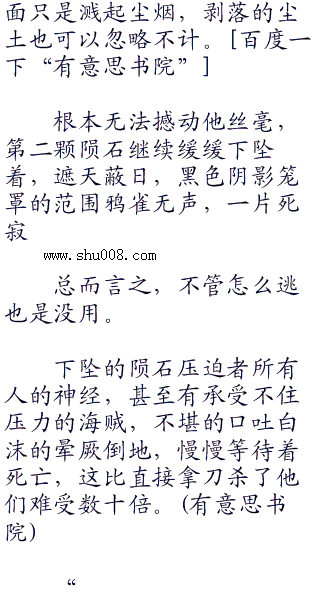 面只是溅起尘烟，剥落的尘
土也可以忽略不计。[百度一
下“有意思书院”]
根本无法撼动他丝毫，
第二颗陨石继续缓缓下坠
着，遮天蔽日，黑色阴影笼
罩的范围鸦雀无声，一片死
寂
www.shu008.com
总而言之，不管怎么逃
也是没用。
下坠的陨石压迫者所有
人的神经，甚至有承受不住
压力的海贼，不堪的口吐白
沫的晕厥倒地，慢慢等待着
死亡，这比直接拿刀杀了他
们难受数十倍。(有意思书
院)
“